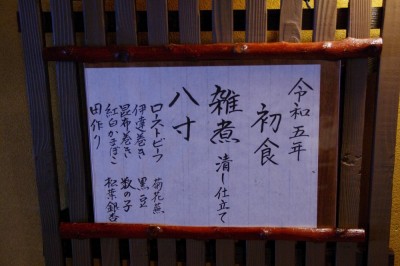 令和五年
初食
雑煮 清し仕立て
八寸
ローストビーフ 菊花蕪
伊達巻き 黒豆
昆布巻き 数の子
紅白かまぼこ 松葉銀杏
田作り